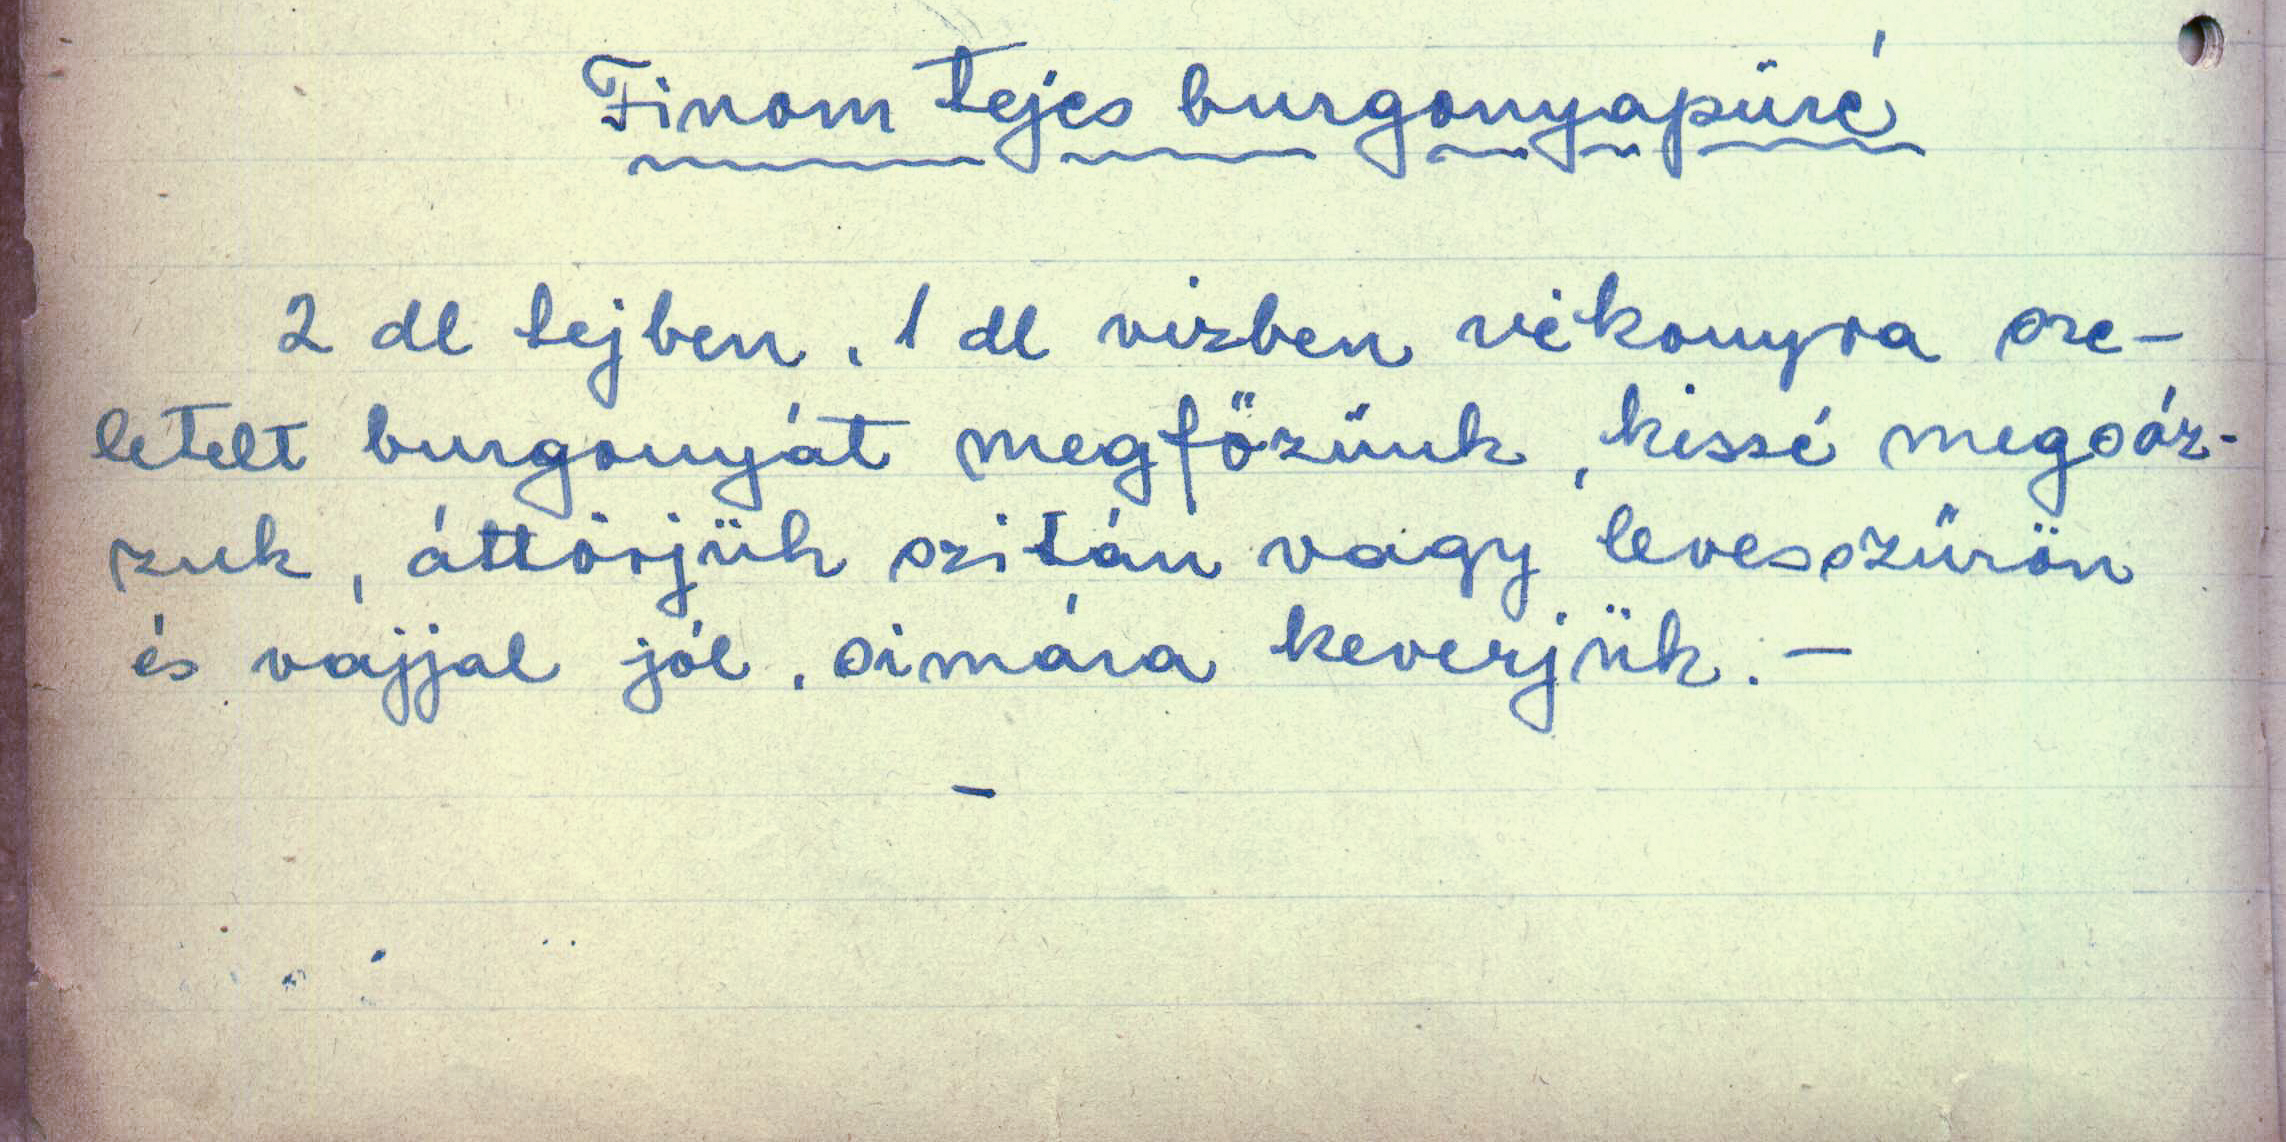 Finom tejes burgonyapüré
2 dl tejben, 1 dl vizben vékonyra sze-
letelt burgonyát megfőzünk, kissé megsóz-
zuk, áttörjük szitán vagy levesszűrőn
és vajjal jól, simára keverjük. –
–